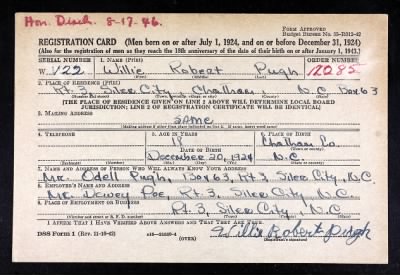 Hon. Disch. 8-17-46.
Form Approved
Budget Bureau No.
REGISTRATION CARD (Men born on or after July 1, 1924, and on or before December 31, 1924)
(Also for the registration of men as they reach the 18th anniversary of the date of their birth on or after January 1, 1943.)
SERIAL NUMBER
1. NAME (Print)
ORDER NUMBER
W 122
Willie Robert Pugh
12085
(First) (Middle) (Last)
2. PLACE OF RESIDENCE (Print)
Rt. 3 Siler City, Chatham, N.C. Box 63
[THE PLACE OF RESIDENCE GIVEN ON LINE 2 ABOVE WILL DETERMINE LOCAL BOARD
JURISDICTION; LINE 2 OF REGISTRATION CERTIFICATE WILL BE IDENTICAL]
3. MAILING ADDRESS
SAME
4. TELEPHONE
5. AGE IN YEARS
6. PLACE OF BIRTH
18
Chatham Co.
DATE OF BIRTH
December 20, 1924
N.C.
7. NAME AND ADDRESS OF PERSON WHO WILL ALWAYS KNOW YOUR ADDRESS
Mr. Odell Pugh, Box 63, Rt. 3 Siler City, N.C.
8. EMPLOYER'S NAME AND ADDRESS
Mr. Dewey Poe, Rt. 3, Siler City, N.C.
9. PLACE OF EMPLOYMENT OR BUSINESS
Rt. 3, Siler City, N.C.
I AFFIRM THAT I HAVE VERIFIED ABOVE ANSWERS AND THAT THEY ARE TRUE.
DSS Form 1 (Rev. 11-16-42)
(OVER)
Willie Robert Pugh